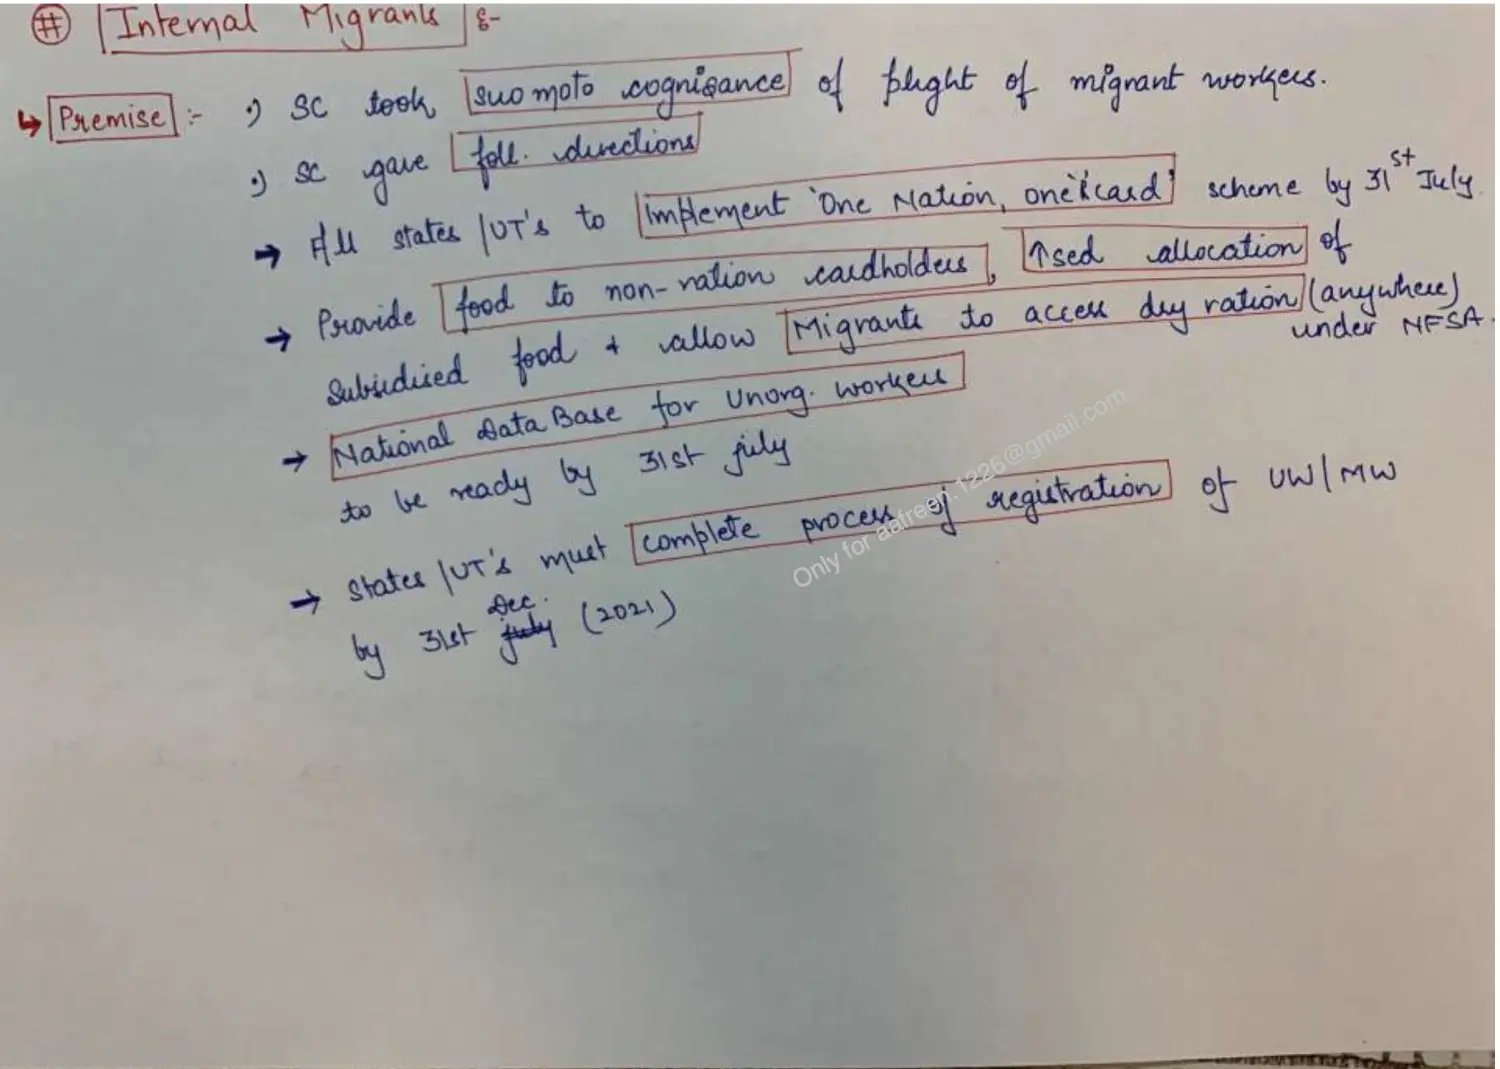 # Internal Migrants :-
↳ Premise :- •) SC took suo moto cognisance of plight of migrant workers.
•) SC gave foll. directions
→ All states/UT's to implement 'One Nation, one R card' scheme by 31st July.
→ Provide food to non-ration cardholders, ↑sed allocation of
subsidised food + allow Migrants to access dry ration (anywhere)
under NFSA.
→ National Data Base for Unorg. workers
to be ready by 31st july
→ States/UT's must complete process of registration of UW/MW
by 31st Dec. (2021)
Only for aafreen.1226@gmail.com